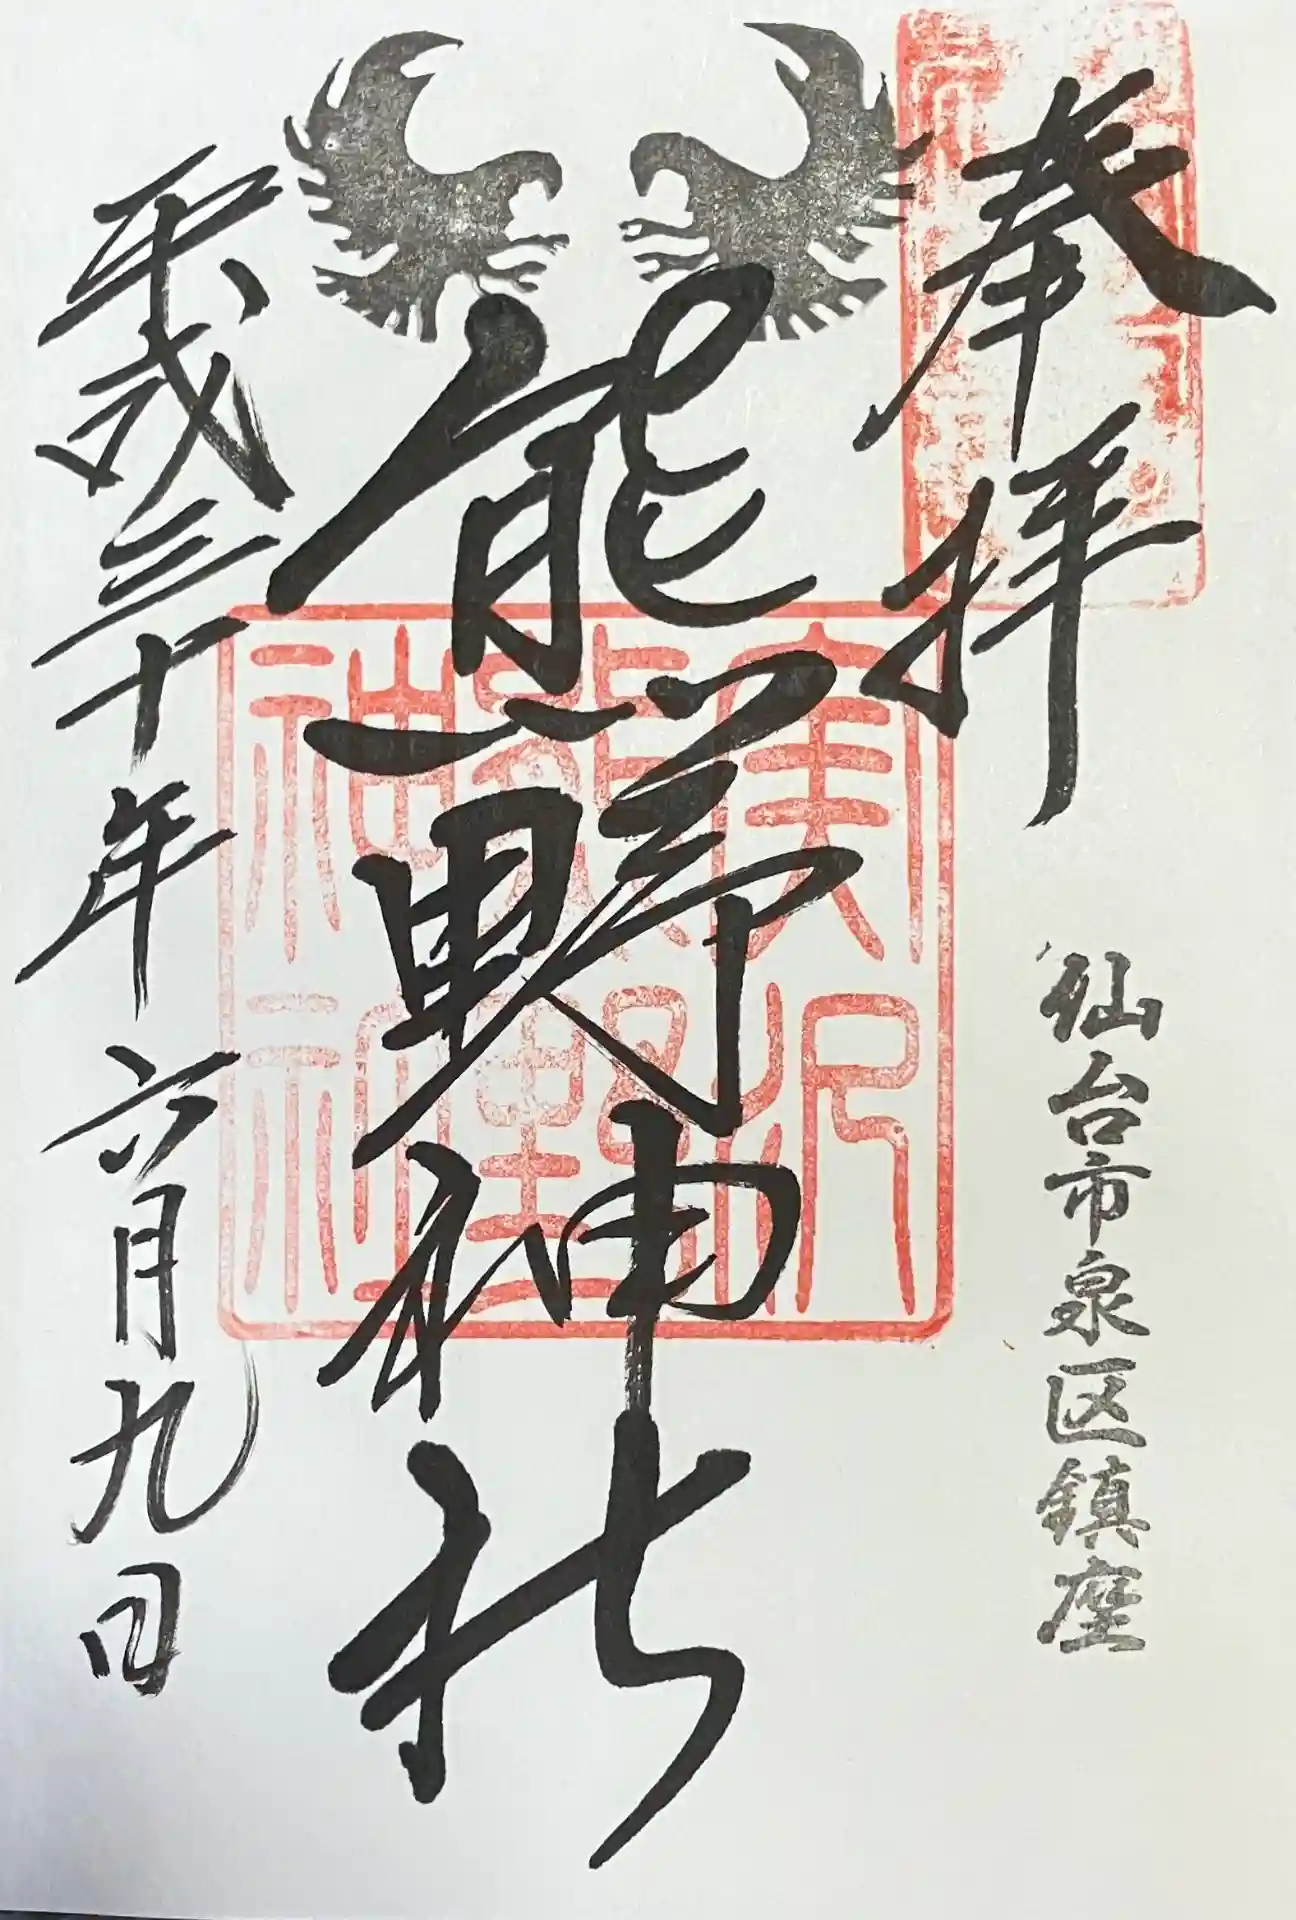 奉拝
仙台市泉区鎮座
熊野神社
実沢
熊野
神社
平成三十年六月九日